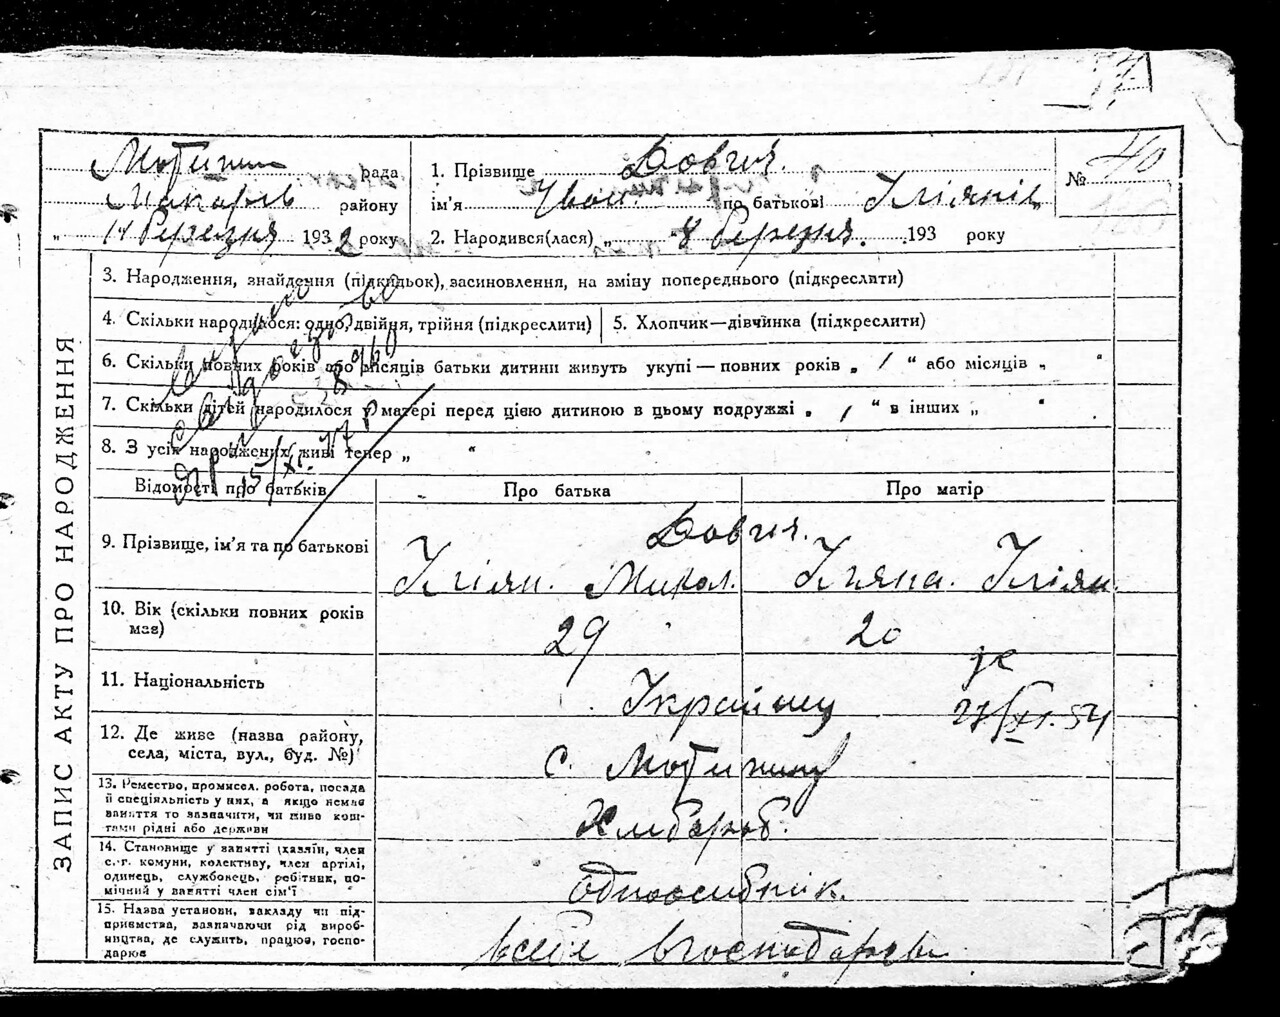 40
Мотижин рада
Макарів району
„ 14 березня 1932 року
1. Прізвище Довгич.
ім'я по батькові
2. Народився(лася) „ 8 березня. 193 року
№
ЗАПИС АКТУ ПРО НАРОДЖЕННЯ
3. Народження, знайдення (підкидьок), засиновлення, на зміну попереднього (підкреслити)
4. Скільки народилося: одно, двійня, трійня (підкреслити)
5. Хлопчик—дівчинка (підкреслити)
6. Скільки повних років або місяців батьки дитини живуть укупі — повних років „ 1 “ або місяців „ “
7. Скільки дітей народилося у матері перед цією дитиною в цьому подружжі „ 1 “ в інших „ “
8. З усіх народжених живі тепер „ “
Відомості про батьків
Про батька
Про матір
9. Прізвище, ім'я та по батькові
Довгич.
Микол.
10. Вік (скільки повних років має)
29
20
11. Національність
Українці
27/XI.54
12. Де живе (назва району,
села, міста, вул., буд. №)
с. Мотижин
13. Ремество, промисел. робота, посада
й спеціяльність у них, а якщо немає
заняття то зазначити, чи живе кош-
тами рідні або держави
Хлібороб.
14. Становище у занятті (хазяїн, член
с.-г. комуни, колективу, член артілі,
одинець, службовець, робітник, по-
мічний у занятті член сім'ї
одноосібник.
15. Назва установи, закладу чи під-
приємства, зазначаючи рід вироб-
ництва, де служить, працює, госпо-
дарює
в себе в господарстві